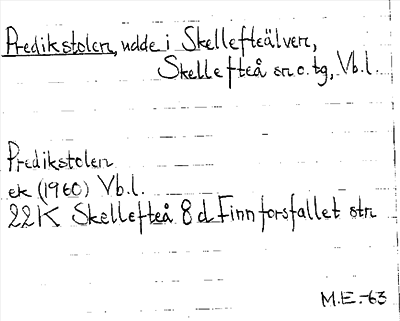 Predikstolen, udde i Skellefteälven,
Skellefteå sn o. tg, Vb.l.
Predikstolen
ek (1960) Vb.l.
22K Skellefteå 8d Finnforsfallet str
M.E.-63